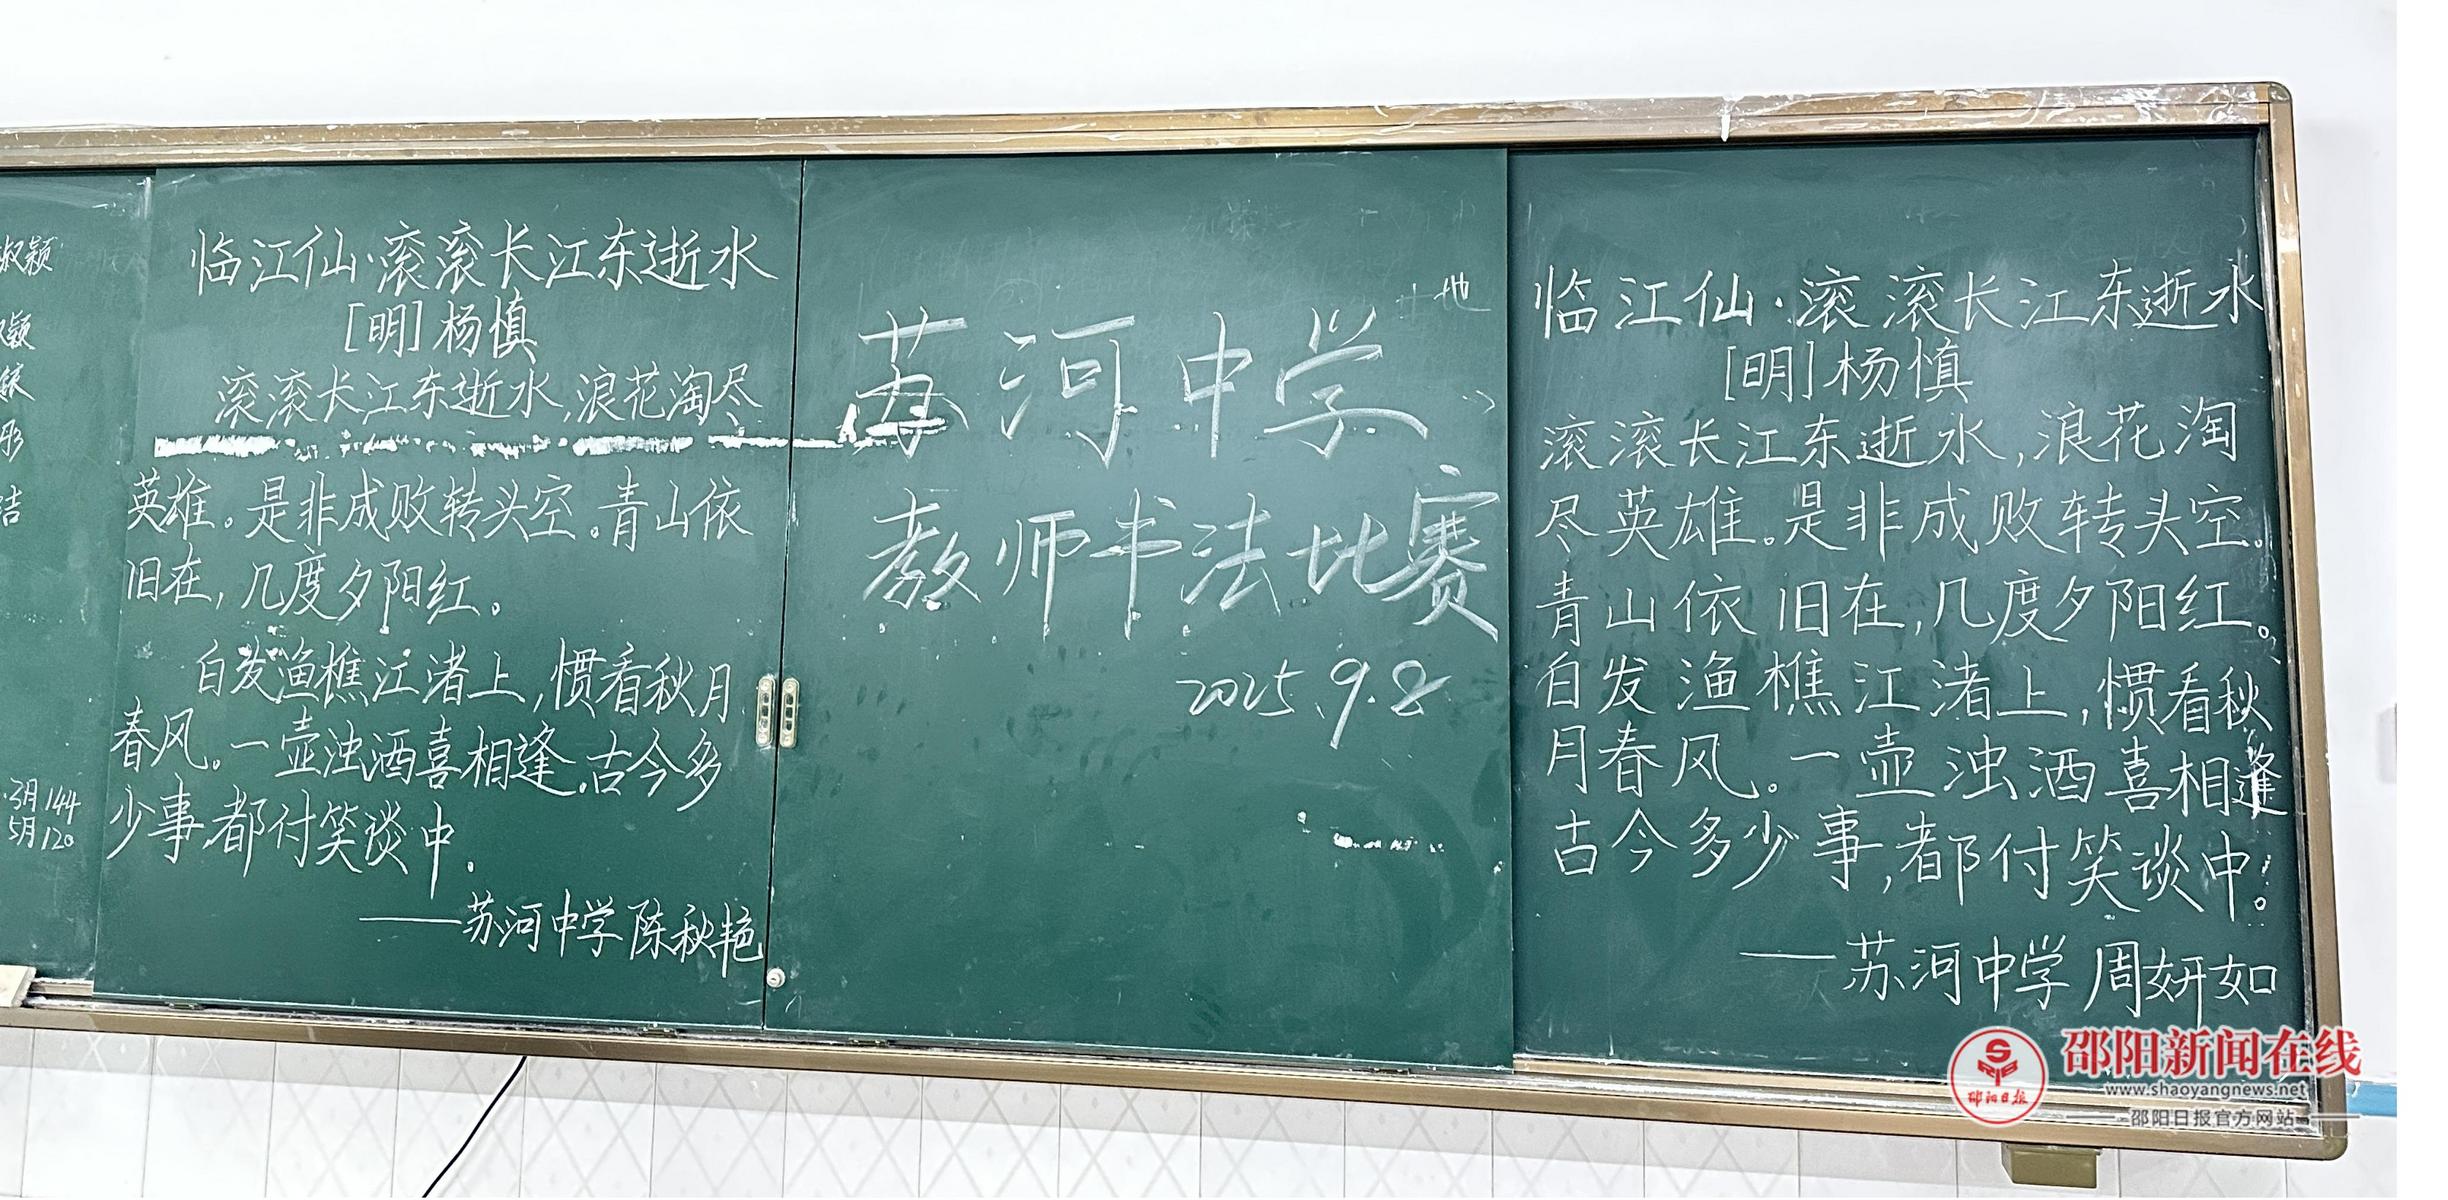 淑颖
颖
彤
洁
3月144
5月120
临江仙·滚滚长江东逝水
[明]杨慎
滚滚长江东逝水,浪花淘尽
英雄。是非成败转头空。青山依
旧在,几度夕阳红。
白发渔樵江渚上,惯看秋月
春风。一壶浊酒喜相逢。古今多
少事,都付笑谈中。
——苏河中学 陈秋艳
地
苏河中学
教师书法比赛
2025.9.8
临江仙·滚滚长江东逝水
[明]杨慎
滚滚长江东逝水,浪花淘
尽英雄。是非成败转头空。
青山依旧在,几度夕阳红。
白发渔樵江渚上,惯看秋
月春风。一壶浊酒喜相逢
古今多少事,都付笑谈中。
——苏河中学 周妍如
邵阳新闻在线
www.shaoyangnews.net
邵阳日报官方网站
SRB
邵阳日报